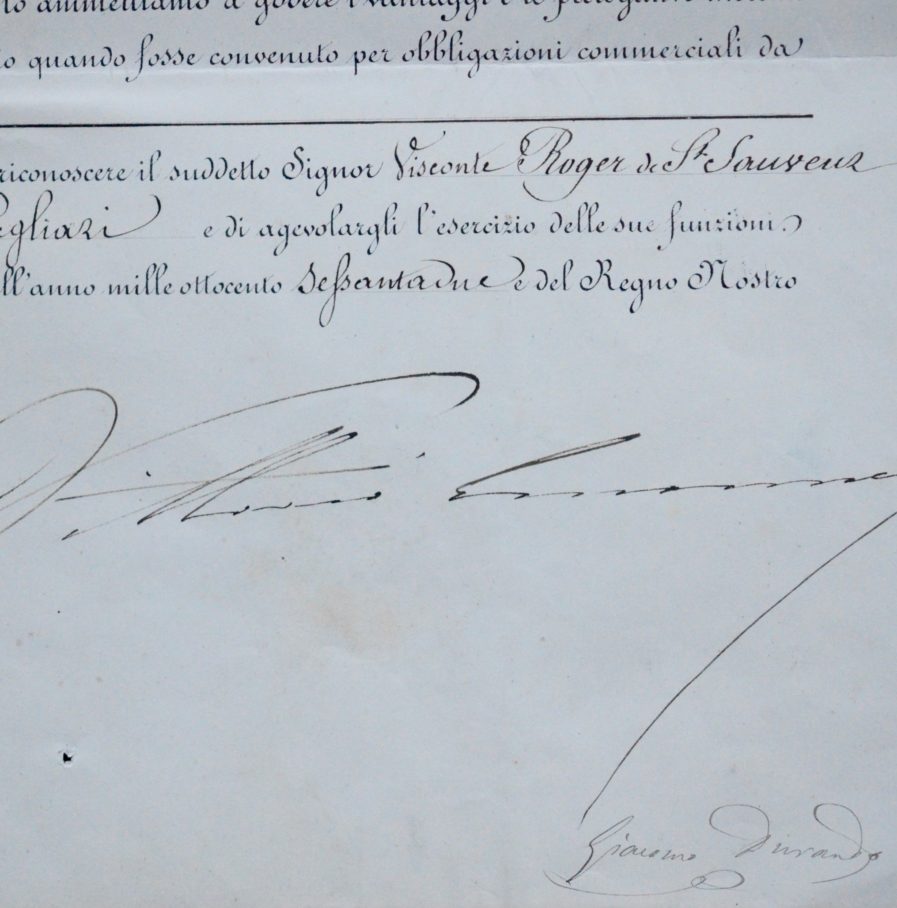 ammettiamo a godere i vantaggi e le
quando fosse convenuto per obbligazioni commerciali da
riconoscere il suddetto Signor Visconte Roger de St. Sauveur
e di agevolargli l'esercizio delle sue funzioni.
ll'anno mille ottocento sessantadue e del Regno Nostro
Vittorio Emanue
Giacomo Durando